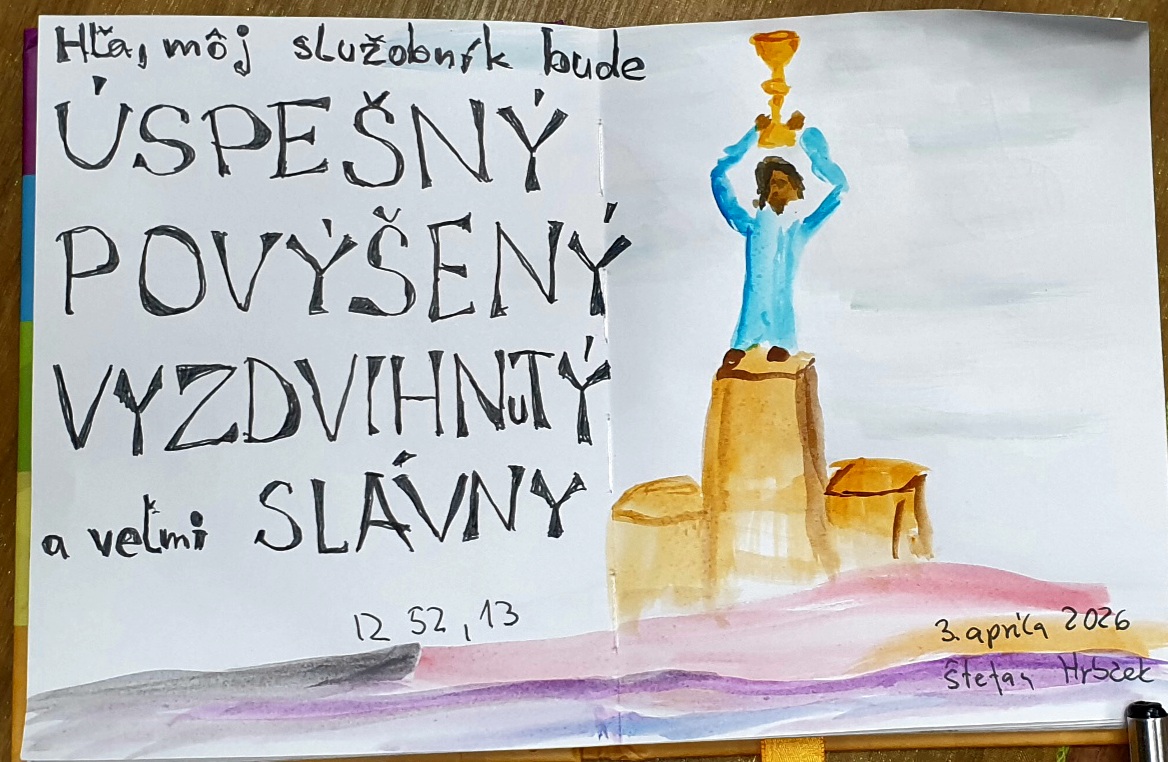 Hľa, môj služobník bude
ÚSPEŠNÝ
POVÝŠENÝ
VYZDVIHNuTÝ
a veľmi SLÁVNY
IZ 52, 13
3. apríla 2026
Štefan Hrbček